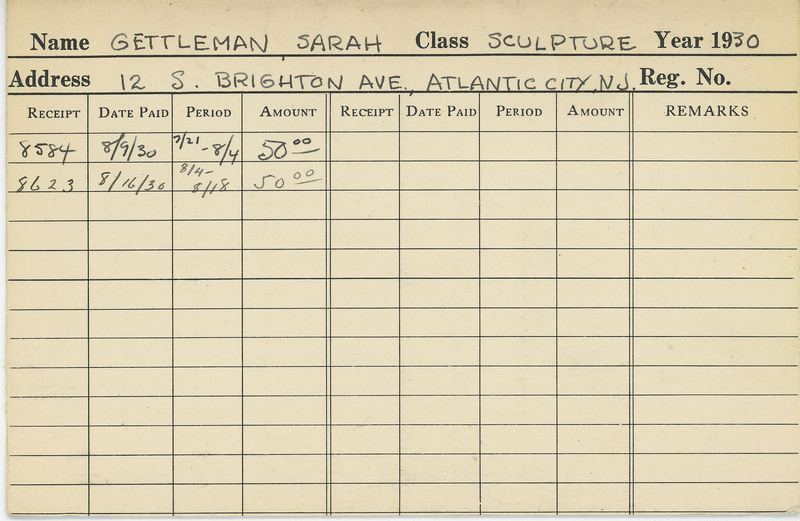 Name GETTLEMAN, SARAH Class SCULPTURE Year 1930
Address 12 S. BRIGHTON AVE., ATLANTIC CITY, N.J. Reg. No.
RECEIPT DATE PAID PERIOD AMOUNT RECEIPT DATE PAID PERIOD AMOUNT REMARKS
8584 8/9/30 7/21-8/4 50 00
8623 8/16/30 8/4-8/18 50 00